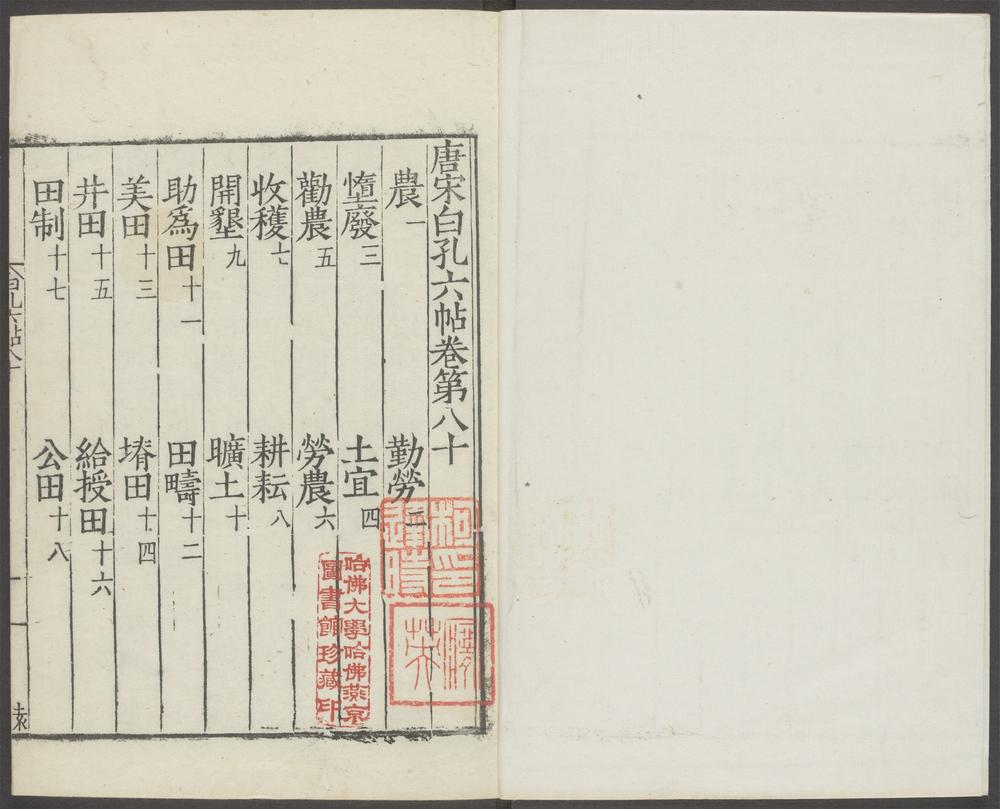 唐宋白孔六帖卷第八十
農一 勤勞二
墮廢三 土宜四
勸農五 勞農六
收穫七 耕耘八
開墾九 曠土十
助為田十一 田疇十二
美田十三 塉田十四
井田十五 給授田十六
田制十七 公田十八
哈佛大學哈佛燕京
圖書館珍藏印